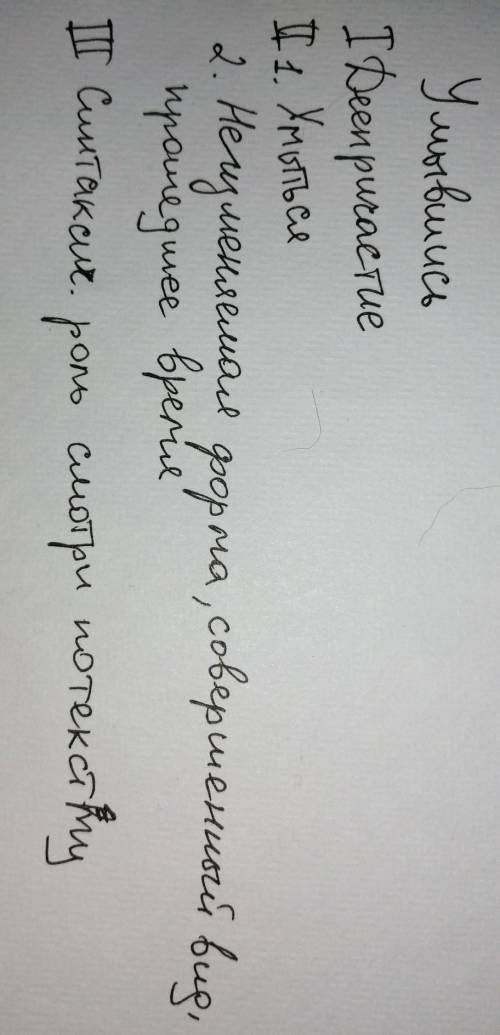 Умывшись
I Деепричастие
II 1. Умыться
2. Неизменяемая форма, совершенный вид,
прошедшее время
III Синтаксич. роль смотри потексту